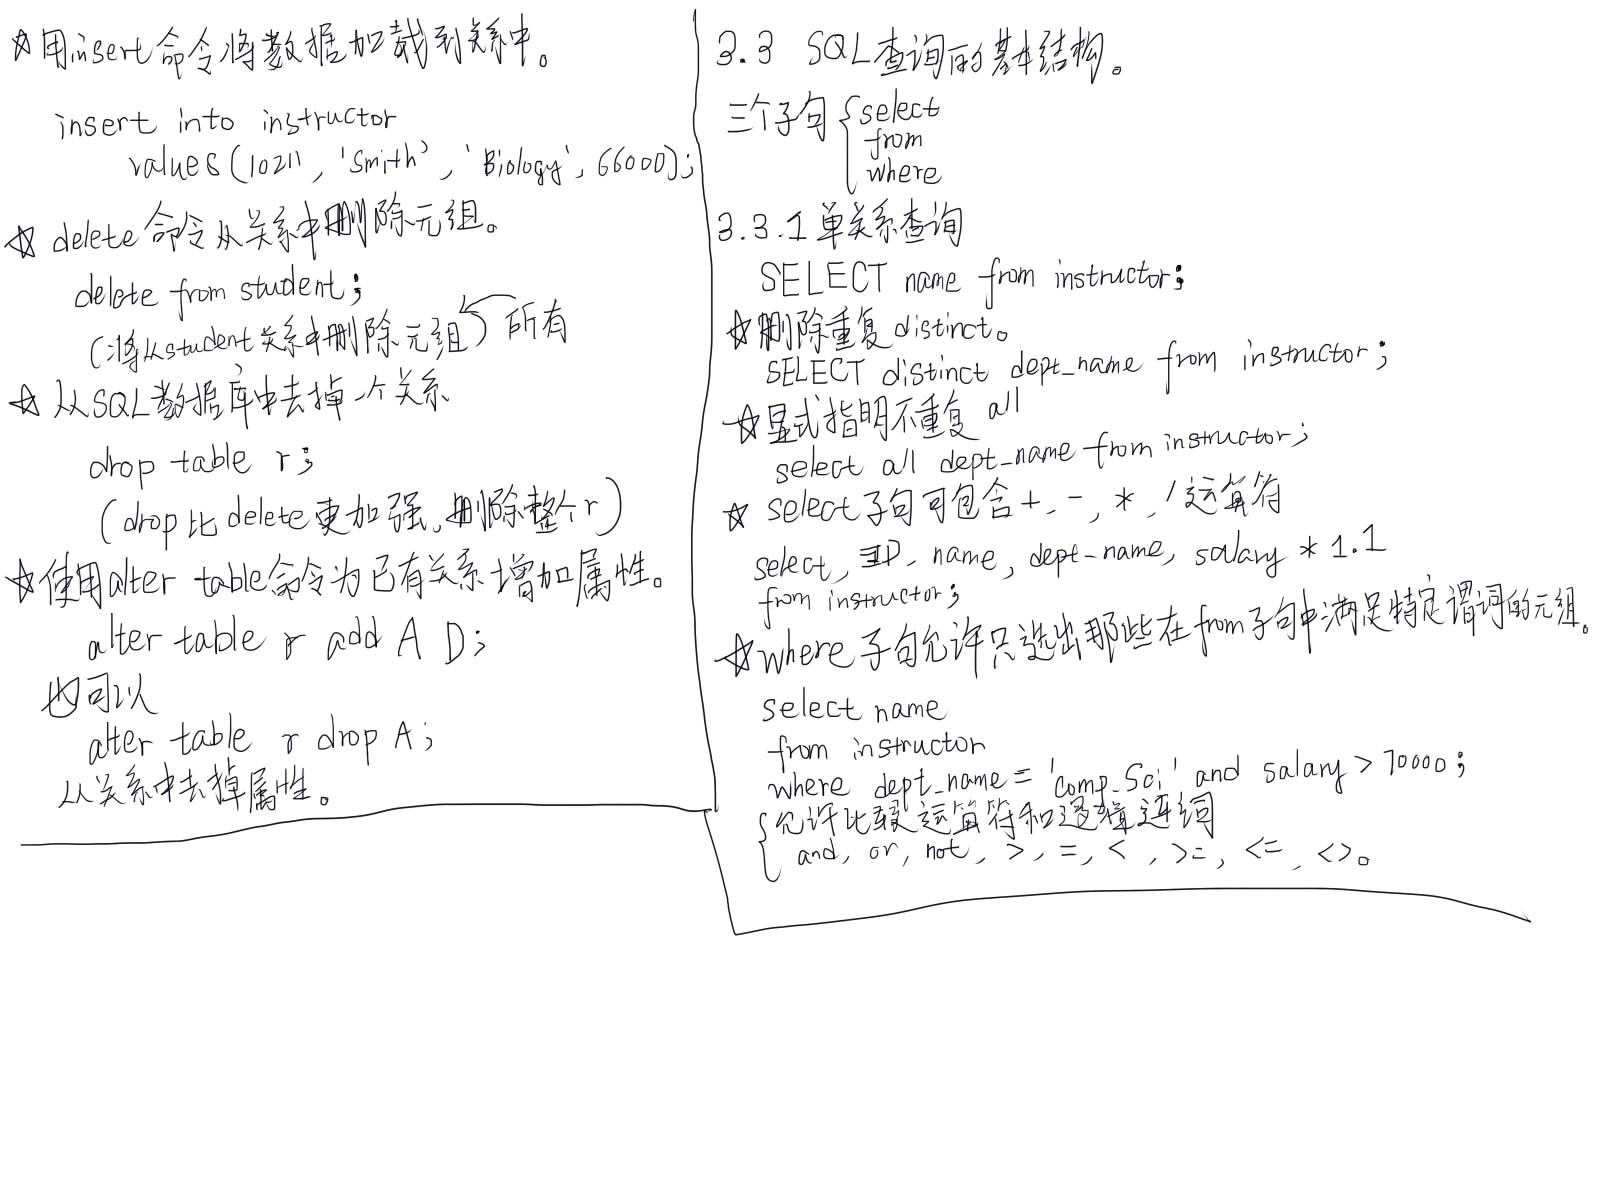 ☆用insert命令将数据加载到关系中。
insert into instructor
values(10211, 'Smith', 'Biology', 66000);
☆ delete命令从关系中删除元组。
delete from student;
(将从student关系中删除元组) 所有
☆ 从SQL数据库中去掉一个关系
drop table r;
(drop比delete更加强,删除整个r)
☆使用alter table命令为已有关系增加属性。
alter table r add A D;
也可以
alter table r drop A;
从关系中去掉属性。
3.3 SQL查询的基本结构。
三个子句{select
from
where
3.3.1单关系查询
SELECT name from instructor;
☆删除重复distinct。
SELECT distinct dept_name from instructor;
☆显式指明不重复 all
select all dept_name from instructor;
☆ select子句可包含+、-、*、/运算符
select, ID, name, dept-name, salary * 1.1
from instructor;
☆where子句允许只选出那些在from子句中满足特定谓词的元组。
select name
from instructor
where dept_name = 'Comp_Sci' and salary > 70000;
{允许比较运算符和逻辑连词
and, or, not, >, =, <, >=, <=, <>。